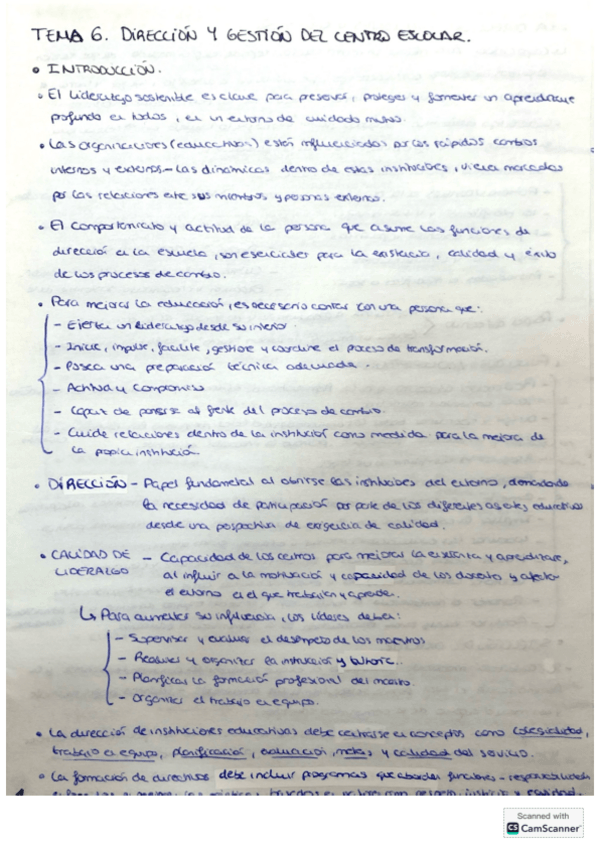 TEMA 6. DIRECCIÓN Y GESTIÓN DEL CENTRO ESCOLAR.
• INTRODUCCIÓN.
• El liderazgo sostenible es clave para preservar, proteger y fomentar un aprendizaje
profundo en todos, en un entorno de cuidado mutuo.
• Las organizaciones (educativas) están influenciadas por los rápidos cambios
internos y externos – las dinámicas dentro de estas instituciones, viene marcadas
por las relaciones entre sus miembros y personas externas.
• El comportamiento y actitud de la persona que asume las funciones de
dirección en la escuela, son esenciales para la existencia, calidad y éxito
de los procesos de cambio.
• Para mejorar la educación, es necesario contar con una persona que:
– Ejerza un liderazgo desde su interior.
– Inicie, impulse, facilite, gestione y coordine el proceso de transformación.
– Posea una preparación técnica adecuada.
– Actitud y compromiso
– Capaz de ponerse al frente del proceso de cambio.
– Cuide relaciones dentro de la institución como medida para la mejora de
la propia institución.
• DIRECCIÓN – Papel fundamental al abrirse las instituciones del entorno, demandando
la necesidad de participación por parte de los diferentes agentes educativos
desde una perspectiva de exigencia de calidad.
• CALIDAD DE – Capacidad de los centros para mejorar la enseñanza y aprendizaje,
LIDERAZGO al influir a la motivación y capacidad de los docentes y
el entorno en el que trabajan y aprenden.
↳ Para aumentar su influencia, los líderes deben:
– Supervisar y evaluar el desempeño de los maestros
– y organizar la instrucción y tutoría.
– Planificar la formación profesional del maestro.
– Organizar el trabajo en equipo.
• La dirección de instituciones educativas debe centrarse en conceptos como colegialidad,
trabajo en equipo, planificación, evaluación, metas y calidad del servicio.
• La formación de directivos debe incluir programas que aborden funciones – responsabilidades
Scanned with
CS CamScanner